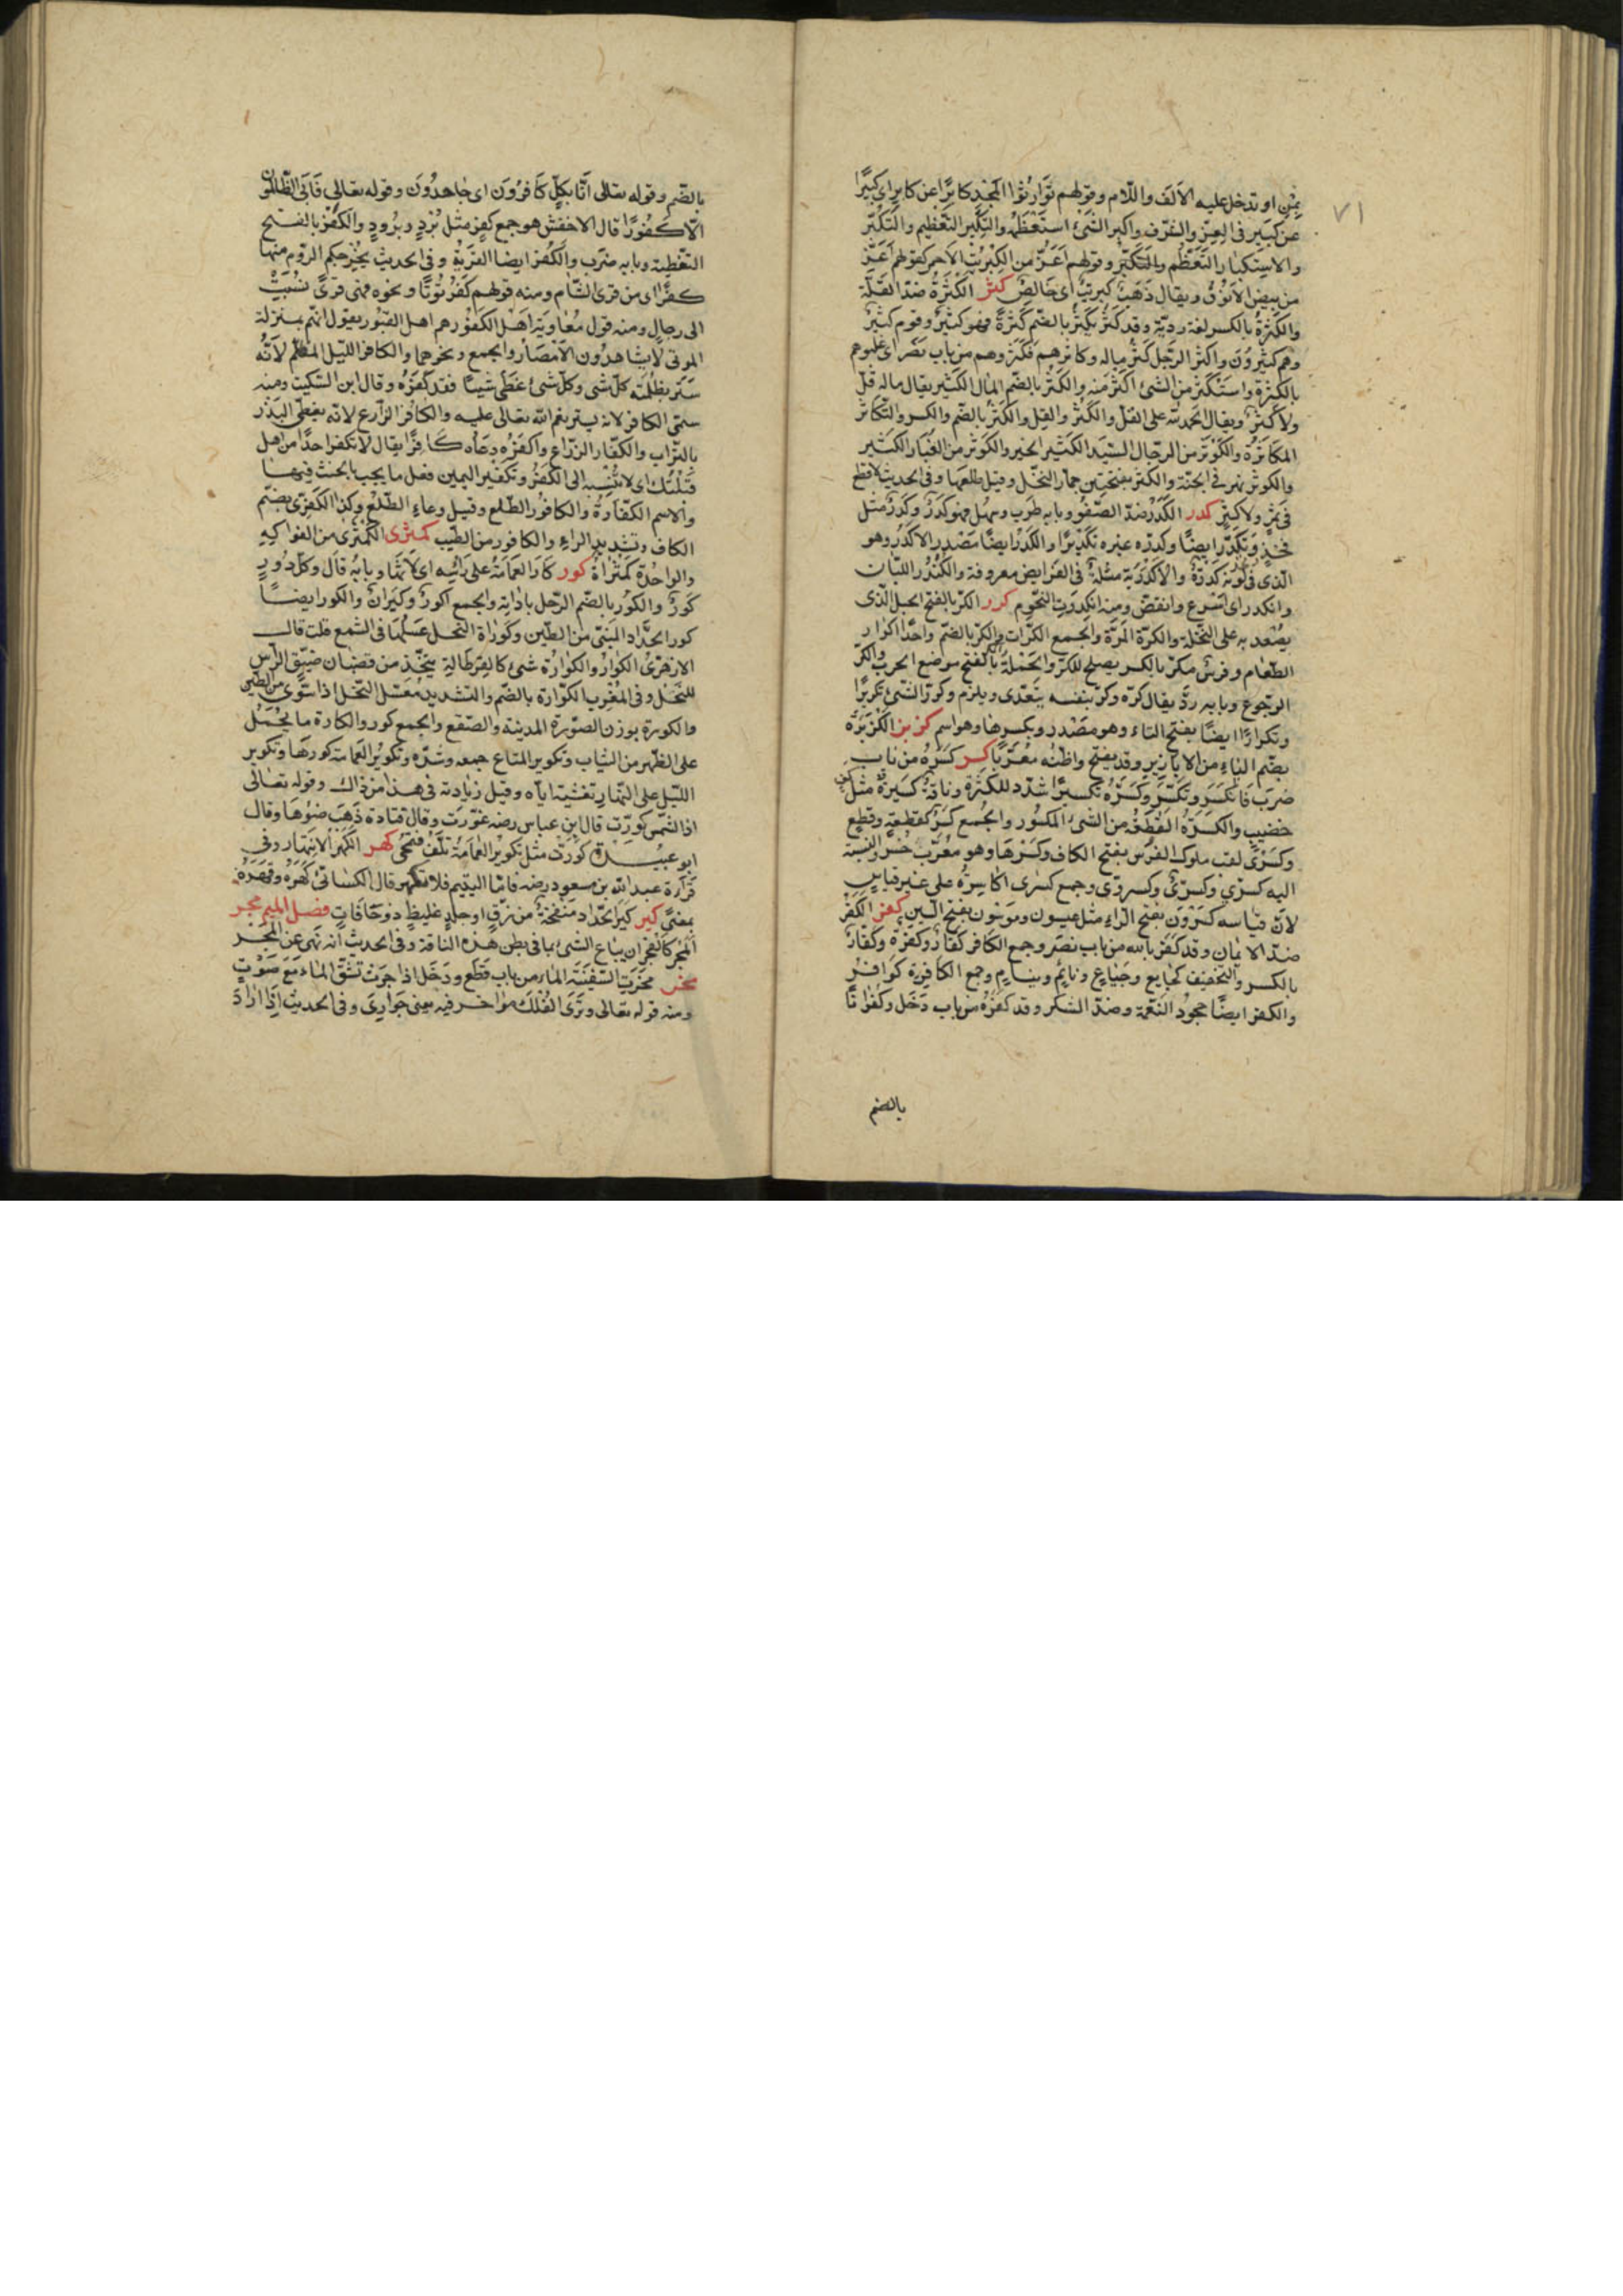 ٧١
بمن او تدخل عليه الالف واللام وقولهم توارثوا المجد كابرًا عن كابر اى كبيرًا
عن كبير فى العزّ والشرف واكبر الشئ استعظمه والتكبير التعظيم والتكبّر
والاستكبار التعظّم والتكبّر وقولهم اعزّ من الكبريت الاحمر كقولهم اعزّ
من بيض الانوق ويقال ذهب كبريت اى خالص كثر الكثرة ضدّ القلّة
والكثرة بالكسر لغة رديّة وقد كثر يكثر بالضّم كثرةً فهو كثير وقوم كثير
وهم كثيرون واكثر الرجل كثر ماله وكاثرهم فكثروهم من باب نصر اى غلبوهم
بالكثرة واستكثر من الشئ اكثر منه والكثر بالضّم المال الكثير يقال ماله قلّ
ولا كثر ويقال الحمد لله على القلّ والكثر والقلّ والكثر بالضّم والكسر والتّكاثر
المكاثرة والكوثر من الرجال السّيد الكثير الخير والكوثر من الغبار الكثير
والكوثر نهر فى الجنّة والكثر بفتحتين جمّار النخل وقيل طلعها وفى الحديث لا قطع
فى ثمر ولا كثر كدر الكدر ضدّ الصّفو وبابه طرب وسهل فهو كدر وكدر مثل
فخذ وتكدّر ايضًا وكدّره غيره تكديرًا والكدر ايضًا مصدر الاكدر وهو
الّذى فى لونه كدرة والاكدرية مسئلة فى الفرايض معروفة والكندر اللبان
وانكدر اى اسرع وانقضّ ومنه انكدرت النّجوم كرر الكرّ بالفتح الحبل الّذى
يصعد به على النّخلة والكرّة المرّة والجمع الكرّات والكرّ بالضّم واحد اكرار
الطّعام وفرس مكرّ بالكسر يصلح للكرّ والحملة والمكرّ بالفتح موضع الحرب والكرّ
الرّجوع وبابه ردّ يقال كرّه وكرّ بنفسه يتعدّى ويلزم وكرّر الشّئ تكريرًا
وتكرارًا ايضًا بفتح التاء وهو مصدر وبكسرها وهو اسم كزبر الكزبرة
بضّم الباء من الابازير وقد يفتح واظنّه معرّبًا كسر كسره من باب
ضرب فانكسر وتكسّر وكسّره تكسيرًا شدّد للكثرة وناقة كسير مثل كفّ
خضيب والكسرة القطعة من الشئ المكسور والجمع كسر كقطعة وقطع
وكسرى لقب ملوك الفرس بفتح الكاف وكسرها وهو معرّب خسرو والنّسبة
اليه كسرىّ وكسرىّ وكسروىّ وجمع كسرى اكاسرة على غير قياس
لانّ قياسه كسرون بفتح الرّاء مثل عيسون وموسون بفتح السّين كفر الكفر
ضدّ الايمان وقد كفر بالله من باب نصر وجمع الكافر كفّار وكفرة وكفار
بالكسر والتّخفيف كجايع وجياع ونائم ونيام وجمع الكافرة كوافر
والكفر ايضًا جحود النّعمة وضدّ الشكر وقد كفره من باب دخل وكفرانًا
بالضم
بالضّم وقوله تعالى انّا بكلّ كافرون اى جاحدون وقوله تعالى فابى الظّالمون
الّا كفورًا قال الاخفش هو جمع كفر مثل برد وبرود والكفر بالفتح
التّغطية وبابه ضرب والكفر ايضا القرية وفى الحديث يخرجكم الرّوم منها
كفرًا كفرًا اى من قرى الشّام ومنه قولهم كفر توثا ونحوه فهى قرى نسبت
الى رجال ومنه قول معاوية اهل الكفور هم اهل القبور يقول انّهم بمنزلة
الموتى لا يشاهدون الامصار والجمع ونحوهما والكافر اللّيل المظلم لانّه
ستر بظلمته كلّ شئ وكلّ شئ غطّى شيئًا فقد كفره وقال ابن السّكيت ومنه
سمّى الكافر لانه يستر نعم الله تعالى عليه والكافر الزارع لانّه يغطّى البذر
بالتّراب والكفّار الزرّاع واكفره دعاه كافرًا يقال لا تكفر احدًا من اهل
قبلتك اى لا تنسبه الى الكفر وتكفير اليمين فعل ما يجب بالحنث فيها
والاسم الكفّارة والكافور الطّلع وقيل وعاء الطّلع وكذا الكفرّى بضمّ
الكاف وتشديد الراء والكافور من الطّيب كمثرى الكمّثرى من الفواكه
والواحدة كمّثراة كور كار العمامة على رأسه اى لاثها وبابه قال وكلّ دور
كور والكور بالضّم الرّحل باداته والجمع اكوار وكيران والكور ايضًا
كور الحدّاد المبنىّ من الطّين وكوّارة النحل عسلها فى الشّمع قلت قال
الازهرى الكوار والكوارة شئ كالقرطالة يتّخذ من قضبان ضيّق الرّأس
للنّحل وفى المغرب الكوّارة بالضّم والتشديد معسّل النّحل اذا سوّى من الطّين
والكورة بوزن الصّورة المدينة والصّقع والجمع كور والكارة ما يحمل
على الظّهر من الثياب وتكوير المتاع جمعه وشدّه وتكوير العمامة كورها وتكوير
اللّيل على النّهار تغشيته ايّاه وقيل زيادته فى هذا من ذاك وقوله تعالى
اذا الشّمس كوّرت قال ابن عباس رضه غوّرت وقال قتادة ذهب ضوءها وقال
ابو عبيدة كوّرت مثل تكوير العمامة تلفّ فتمحى كهر الكهر الانتهار وفى
قراءة عبد الله بن مسعود رضه فامّا اليتيم فلا تكهر قال الكسائى كهره وقهره
بمعنىً كير كير الحدّاد منفخة من زقّ او جلد غليظ ذو حافات فصل الميم مجر
المجر كالفجر ان يباع الشئ بما فى بطن هذه الناقة وفى الحديث انه نهى عن المجر
مخر مخرت السّفينة الماء من باب قطع ودخل اذا جرت تشقّ الماء مع صوت
ومنه قوله تعالى وترى الفلك مواخر فيه يعنى جوارى وفى الحديث اذا اراد